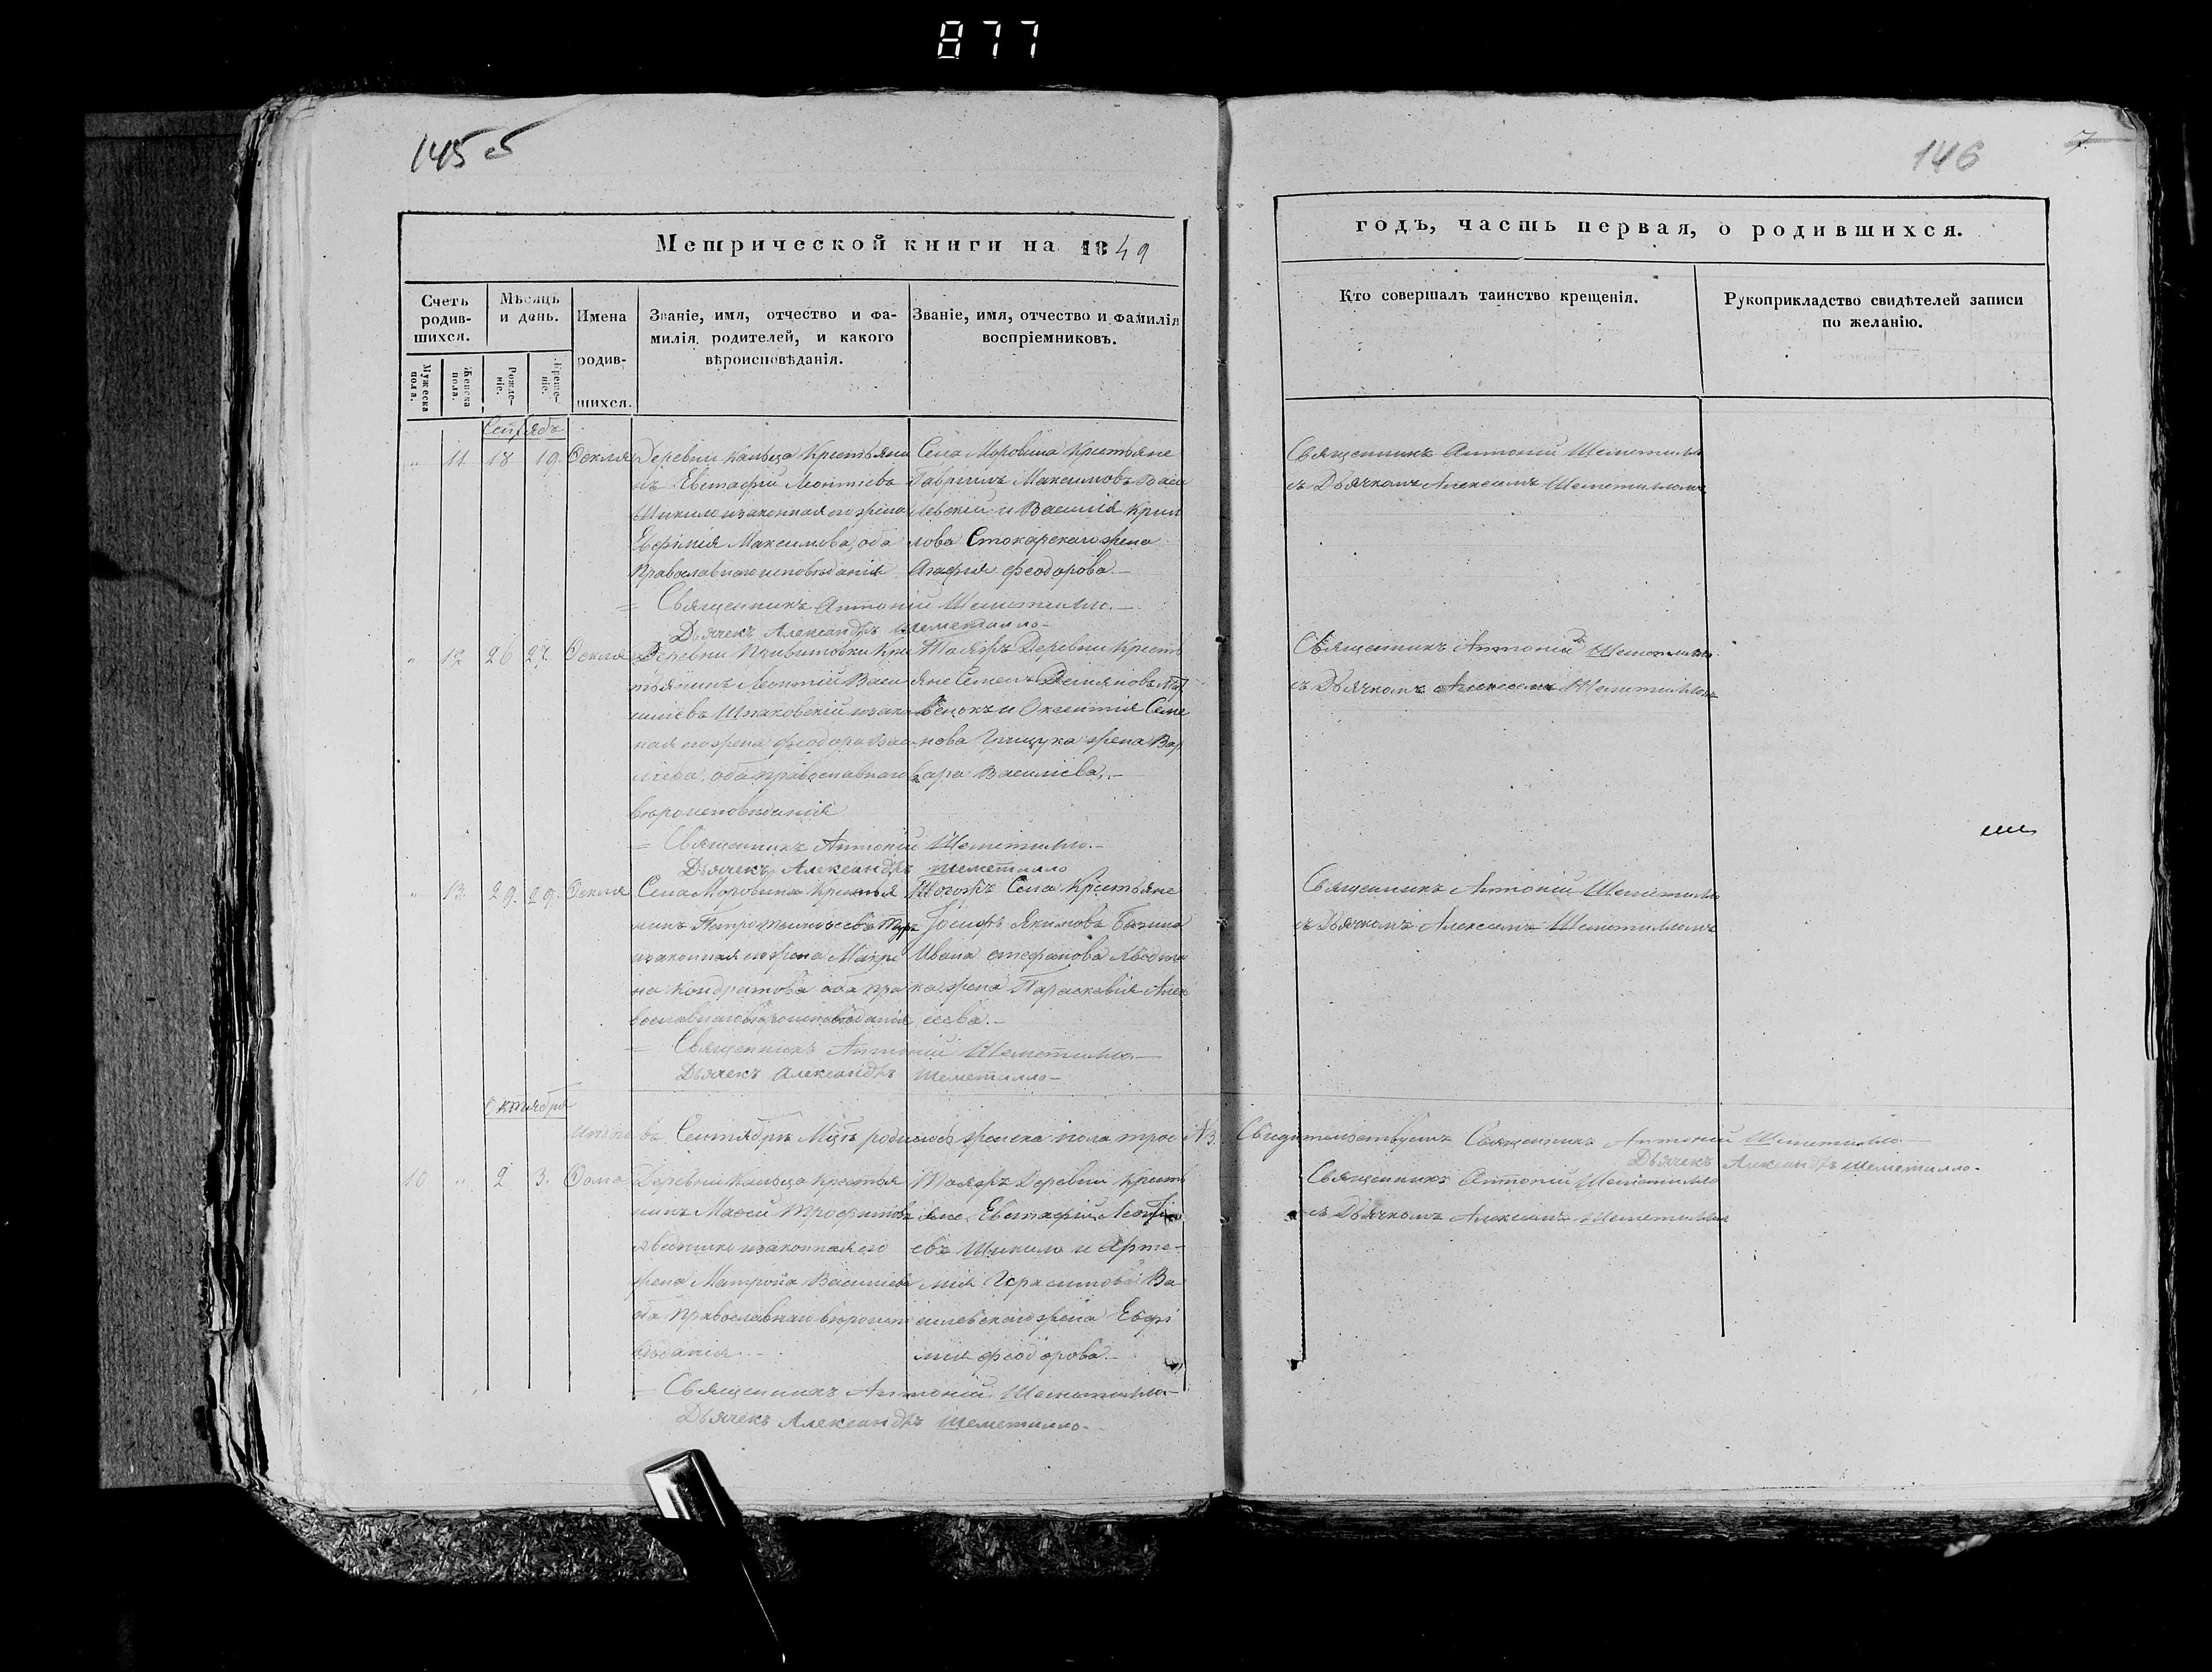 877
145 об
146
7
Метрической книги на 1849
годъ, часть первая, о родившихся.
Счетъ родившихся.
Мѣсяцъ и день.
Имена родившихся.
Званіе, имя, отчество и фамилія родителей, и какого вѣроисповѣданія.
Званіе, имя, отчество и фамилія воспріемниковъ.
Кто совершалъ таинство крещенія.
Рукоприкладство свидѣтелей записи по желанію.
Мужеска пола.
Женска пола.
Рожденіе.
Крещеніе.
11 18 19. Фекля
Деревни Кальца Крестьяни
нъ Евстафій Леонтіевъ
Шикило изаконная его жена
Евфимія Максимова, оба
православнаго исповѣданія
Села Моровина Крестьяне
Гавріилъ Максимовъ Васи
левскій и Василія Кирил
лова Стокарскаго жена
Агафія Феодорова.
Священникъ Антоній Шеметилло.
Дьячекъ Александръ Шеметилло
Священникъ Антоній Шеметилло
съ Дьячкомъ Алексеемъ Шеметилломъ
12 26 27. Фекля
тьянинъ Леонтій Васи
ліевъ Шпаковскій изакон
ная его жена Феодора Васи
лиева, оба православнаго
вѣроисповѣданія
Таяжъ Деревни Кресть
яне Семенъ Демяновъ
и Оксентія Семе
нова Грищука жена Вар
вара Василіева.
Священникъ Антоній Шеметилло.
Дьячекъ Александръ Шеметилло
Священникъ Антоній Шеметилло
съ Дьячкомъ Алексеемъ Шеметилломъ
13. 29. 29. Фекля
Села Моровина Крестья
нинъ Петро
изаконная его жена Макри
на Кондратова оба пра
вославнаго вѣроисповѣданія
Тогожъ Села Крестьяне
Іосифъ Якимовъ
Ивана Стефанова Лводни
ка жена Параскевія Алек
сеева.
Священникъ Антоній Шеметилло
Дьячекъ Александръ Шеметилло
Священникъ Антоній Шеметилло
съ Дьячкомъ Алексеемъ Шеметилломъ
Октября
Итого въ Сентябрѣ Мцѣ родилось женска пола трое №3. Свидительствуемъ Священникъ Антоній Шеметилло
Дьячекъ Александръ Шеметилло
10 2 3. Фома
Деревни Кальца Крестья
нинъ Мосей Трофимовъ
изаконная его
жена Матрона Василіева
оба православнаго вѣроиспо
вѣданія.
Таяжъ Деревни Кресть
яне Евстафій Леонті
евъ Шикило и Арте
мія Герасимова Ва
силевскаго жена Евфи
мія Феодорова.
Священникъ Антоній Шеметилло
Дьячекъ Александръ Шеметилло
Священникъ Антоній Шеметилло
съ Дьячкомъ Алексеемъ Шеметилломъ